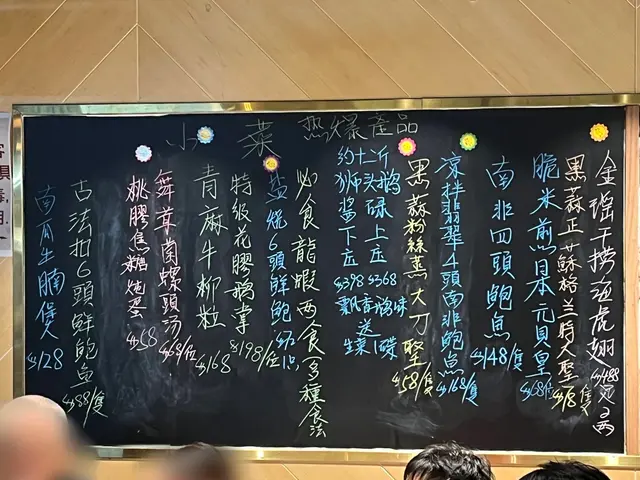 小菜 熱爆產品
金瑤干撈頂虎翅
黑蒜正蘇格蘭特大聖
脆米煎日本元貝皇 $68/位
南非四頭鮑魚 $148/隻
涼拌翡翠4頭南非鮑魚 $168/隻
黑蒜粉絲蒸大刀聖 $58/隻
約十二斤
獅頭鵝
碌上庄 $368
醬下庄 $398
飄香鵝味
送生菜1碟
必食龍蝦兩食(3種食法)
鹽焗6頭鮮鮑
特級花膠鵝掌 $198/位
青麻牛柳粒 $168
舞茸菌螺頭湯 $68/位
桃膠焦糖燉聖 $58
古法扣6頭鮮鮑魚 $88/隻
南乳牛腩煲 $128